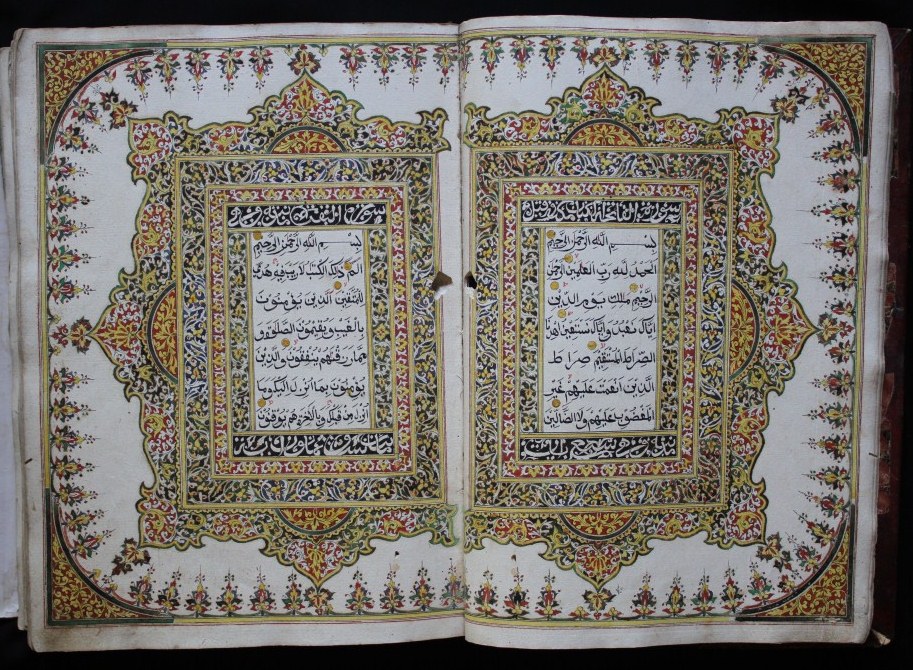 سورة الفاتحة الكتاب مكية وقيل
بسم الله الرحمن الرحيم
الحمد لله رب العلمين الرحمن
الرحيم ملك يوم الدين
اياك نعبد واياك نستعين اهدنا
الصراط المستقيم صراط
الذين انعمت عليهم غير
المغضوب عليهم ولا الضالين
سبع
سورة البقرة
بسم الله الرحمن الرحيم
الم ذلك الكتب لا ريب فيه هدى
للمتقين الذين يؤمنون
بالغيب ويقيمون الصلوة و
مما رزقنهم ينفقون والذين
يؤمنون بما انزل اليك وما
انزل من قبلك وبالاخرة هم يوقنون